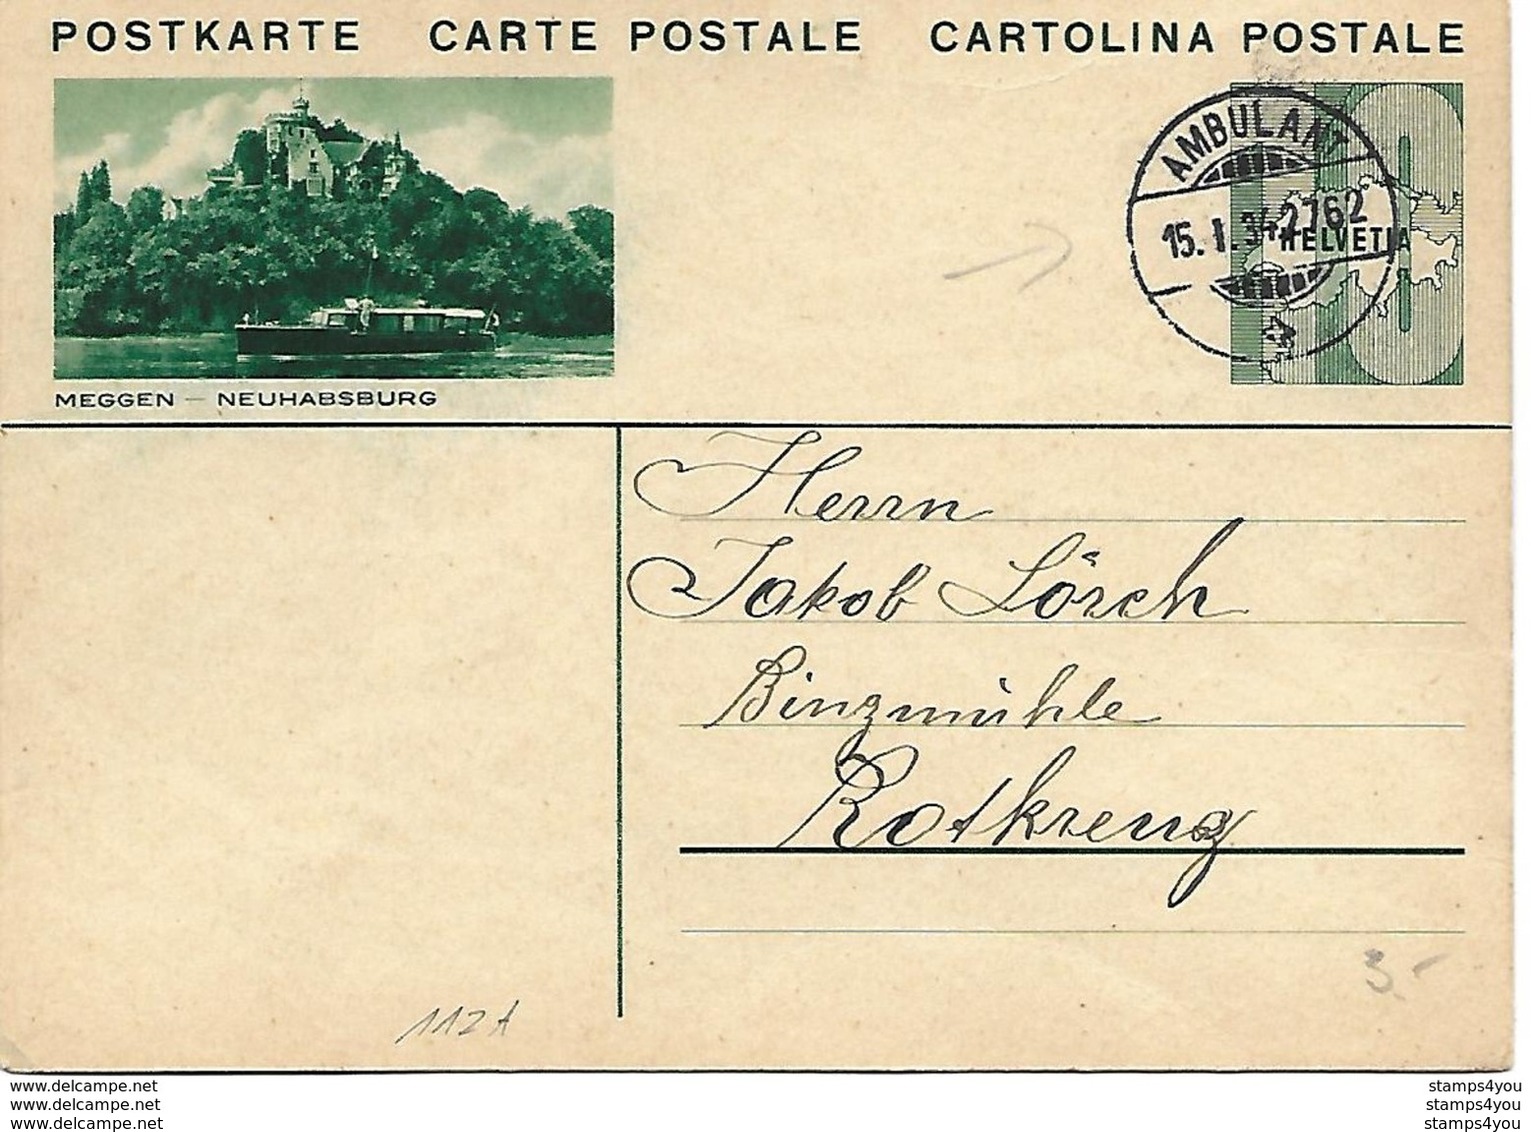 POSTKARTE CARTE POSTALE CARTOLINA POSTALE
AMBULANT
15.I.34.2762
HELVETIA
MEGGEN – NEUHABSBURG
Herrn
Jakob Lörch
Binzmühle
Rotkreuz
3.-
112A
www.delcampe.net
www.delcampe.net
www.delcampe.net
stamps4you
stamps4you
stamps4you